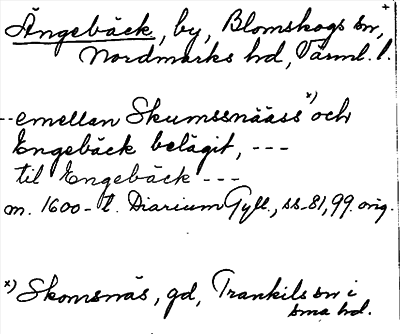 Ängebäck, by, Blomskogs sn,
Nordmarks hd, Värml. l.
--emellan Skumssnääss x) och
Engebäck belägit, ---
til Engebäck ---
m. 1600-t. Diarium Gyll., ss. 81, 99. orig.
x) Skomsnäs, gd, Trankils sn i
sma hd.